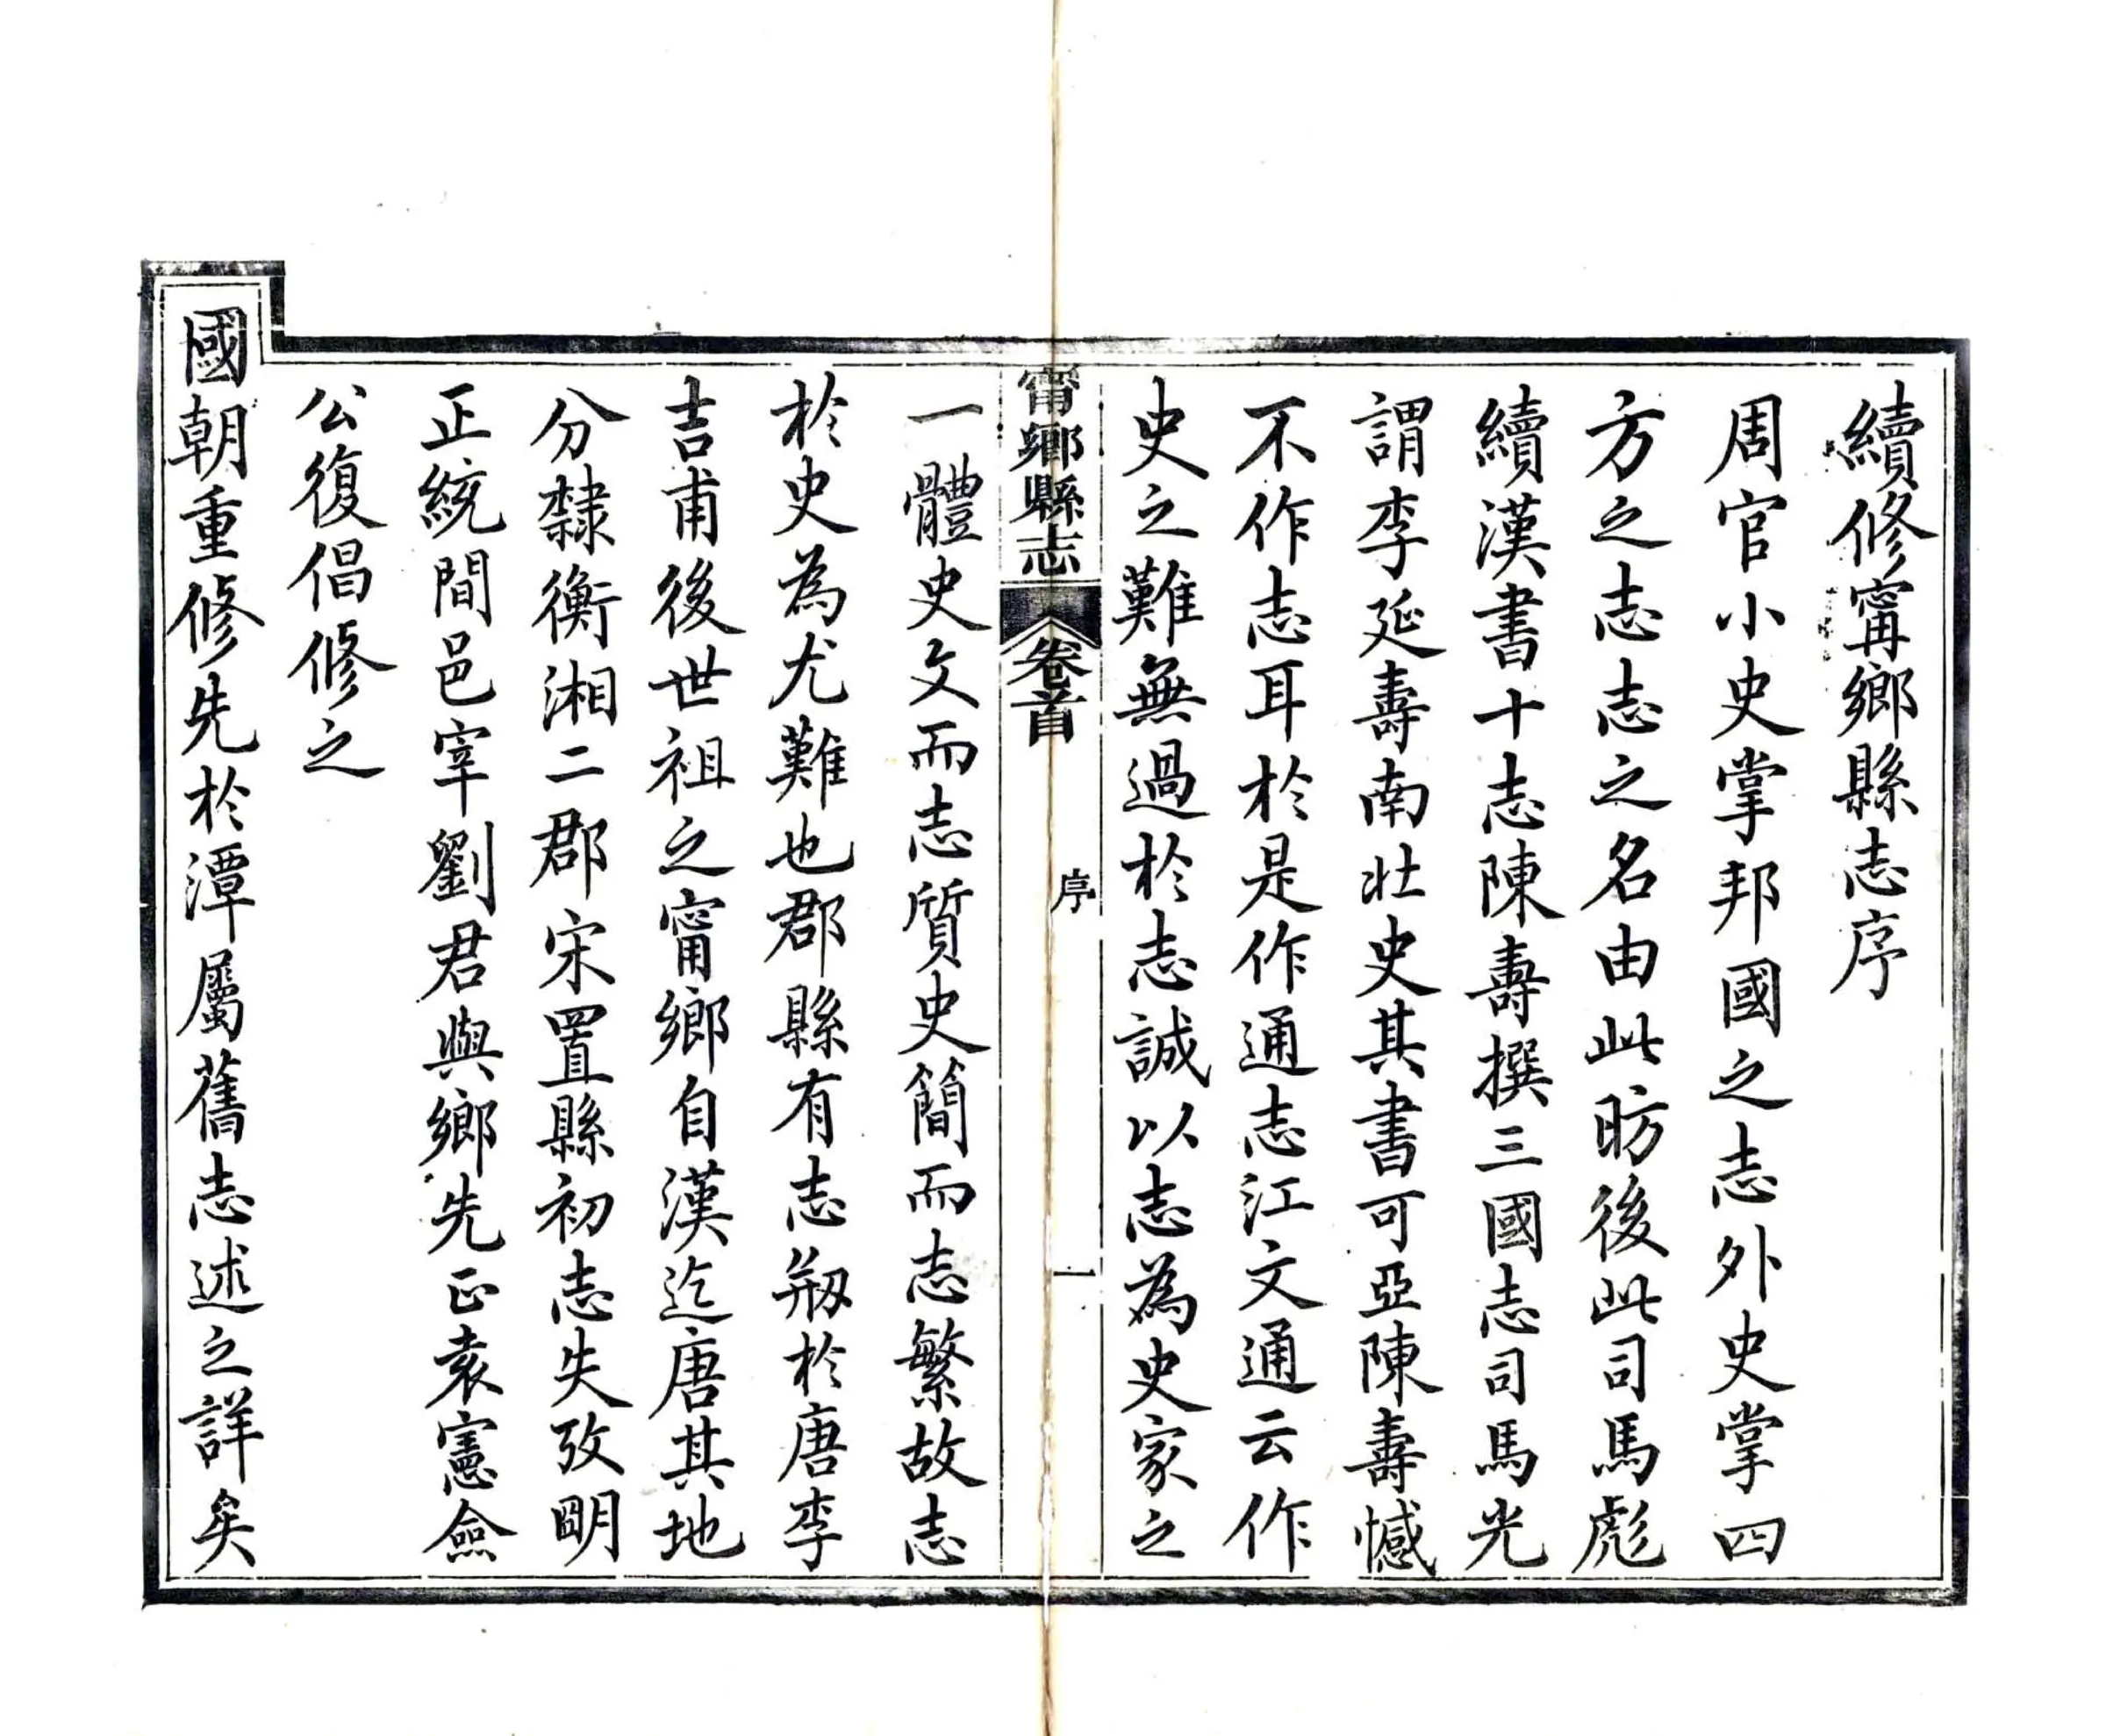 續修甯鄉縣志序
周官小史掌邦國之志外史掌四
方之志志之名由此昉後此司馬彪
續漢書十志陳壽撰三國志司馬光
謂李延壽南北史其書可亞陳壽憾
不作志耳於是作通志江文通云作
史之難無過於志誠以志為史家之
甯鄉縣志
卷首
序
一
一體史文而志質史簡而志繁故志
於史為尤難也郡縣有志刱於唐李
吉甫後世祖之甯鄉自漢迄唐其地
分隸衡湘二郡宋置縣初志失攷明
正統間邑宰劉君與鄉先正袁憲僉
公復倡修之
國朝重修先於潭屬舊志述之詳矣